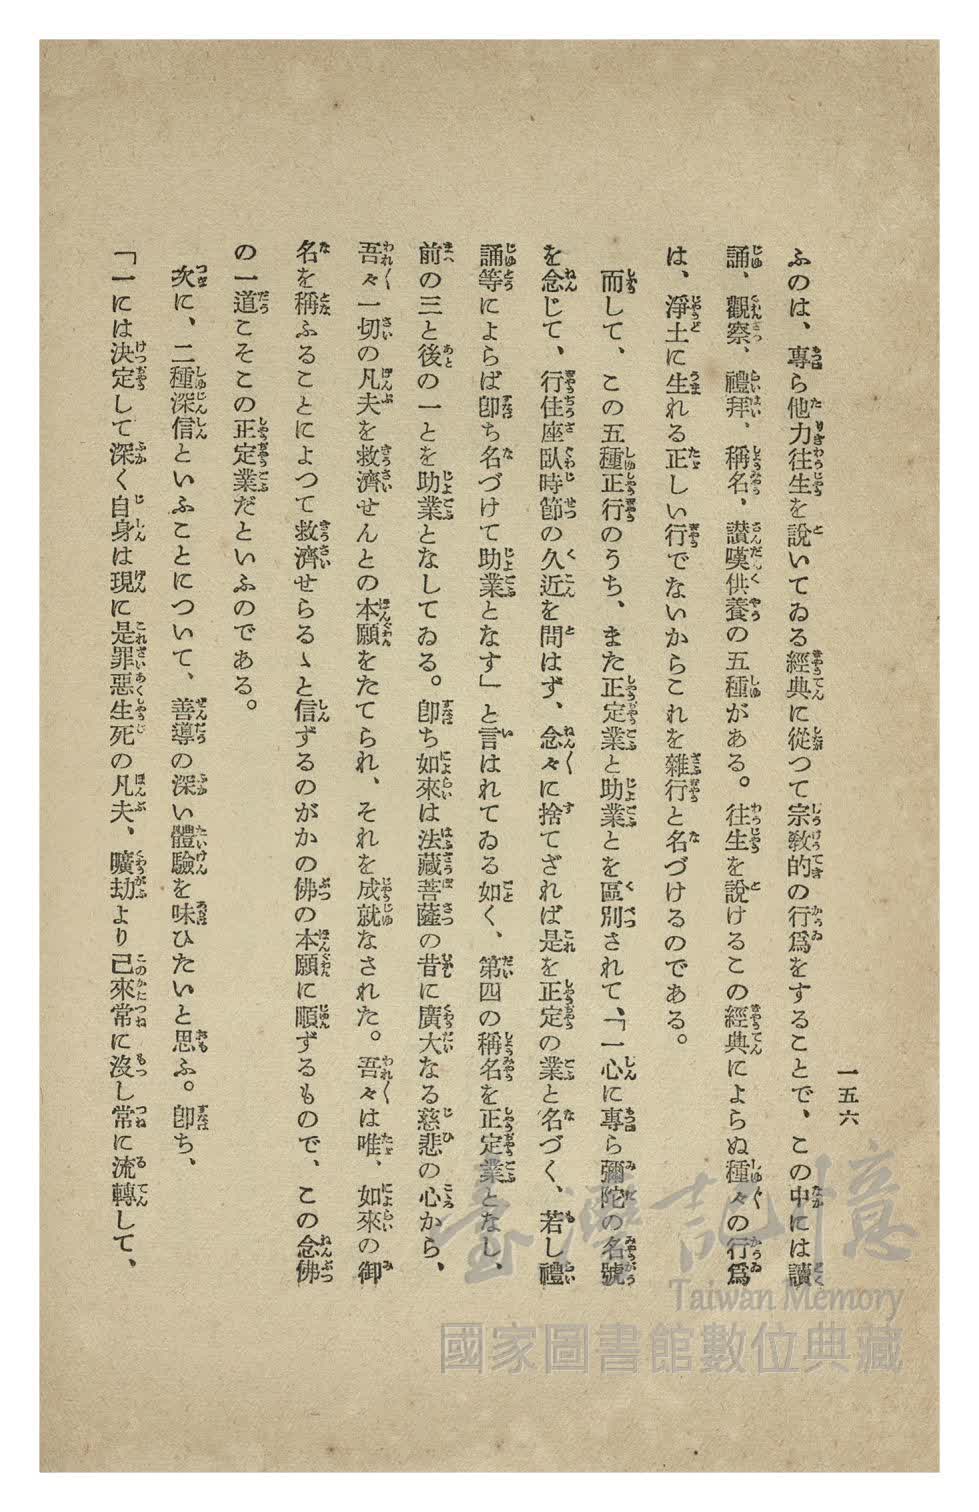 一五六
ふのは、專ら他力往生を說いてゐる經典に從つて宗敎的の行爲をすることで、この中には讀
誦、觀察、禮拜、稱名、讃嘆供養の五種がある。往生を說けるこの經典によらぬ種々の行爲
は、淨土に生れる正しい行でないからこれを雜行と名づけるのである。
而して、この五種正行のうち、また正定業と助業とを區別されて、「一心に專ら彌陀の名號
を念じて、行住座臥時節の久近を問はず、念々に捨てざれば是を正定の業と名づく、若し禮
誦等によらば卽ち名づけて助業となす」と言はれてゐる如く、第四の稱名を正定業となし、
前の三と後の一とを助業となしてゐる。卽ち如來は法藏菩薩の昔に廣大なる慈悲の心から、
吾々一切の凡夫を救濟せんとの本願をたてられ、それを成就なされた。吾々は唯、如來の御
名を稱ふることによつて救濟せらるゝと信ずるのがかの佛の本願に順ずるもので、この念佛
の一道こそこの正定業だといふのである。
次に、二種深信といふことについて、善導の深い體驗を味ひたいと思ふ。卽ち、
「一には決定して深く自身は現に是罪惡生死の凡夫、曠劫より已來常に沒し常に流轉して、
臺灣記憶
Taiwan Memory
國家圖書館數位典藏